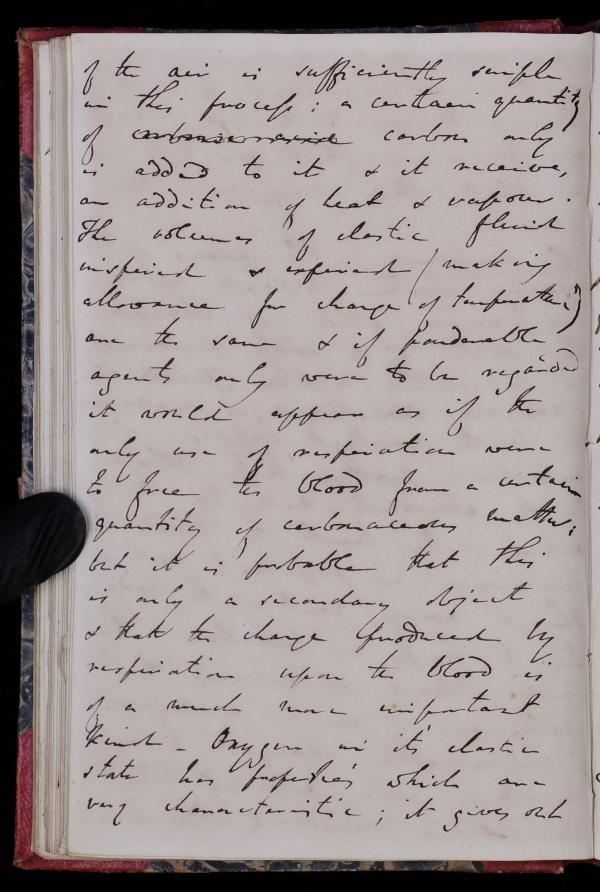 of the air is sufficiently simple
in this process: a certain quantity
of carbon only
is added to it & it receives,
an addition of heat & vapour.
The volumes of elastic fluid
inspired & expired (making
allowance for change of temperature)
are the same & if ponderable
agents only were to be regarded
it would appear as if the
only use of respiration were
to free the blood from a certain
quantity of carbonaceous matter;
but it is probable that this
is only a secondary object
& that the change produced by
respiration upon the blood is
of a much more important
kind - Oxygen in it's elastic
state has properties which are
very characteristic; it gives out